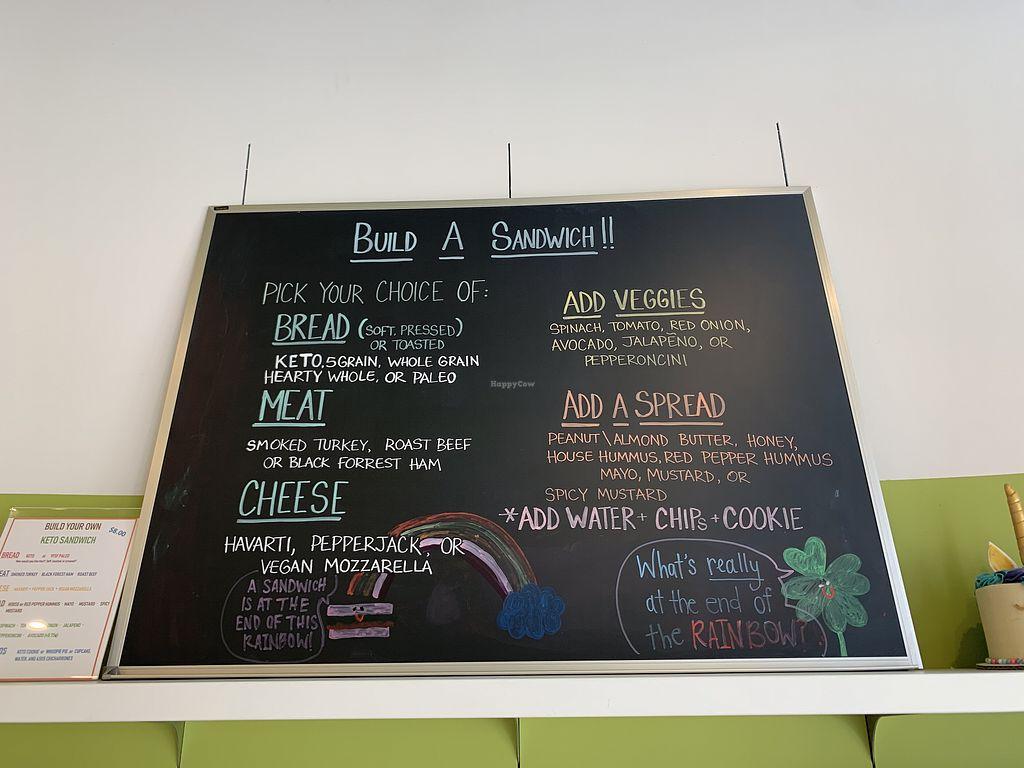 BUILD A SANDWICH!!
PICK YOUR CHOICE OF:
BREAD (SOFT, PRESSED)
OR TOASTED
KETO, 5GRAIN, WHOLE GRAIN
HEARTY WHOLE, OR PALEO
MEAT
SMOKED TURKEY, ROAST BEEF
OR BLACK FORREST HAM
CHEESE
HAVARTI, PEPPERJACK, OR
VEGAN MOZZARELLA
A SANDWICH
IS AT THE
END OF THIS
RAINBOW!
ADD VEGGIES
SPINACH, TOMATO, RED ONION,
AVOCADO, JALAPEÑO, OR
PEPPERONCINI
ADD A SPREAD
PEANUT\ALMOND BUTTER, HONEY,
HOUSE HUMMUS, RED PEPPER HUMMUS
MAYO, MUSTARD, OR
SPICY MUSTARD
*ADD WATER + CHIPS + COOKIE
What's really
at the end of
the RAINBOW?
HappyCow
BUILD YOUR OWN $8.00
KETO SANDWICH
BREAD KETO or
SMOKED TURKEY BLACK FOREST HAM ROAST BEEF
HAVARTI + PEPPER JACK + VEGAN MOZZARELLA
HOUSE or RED PEPPER HUMMUS MAYO MUSTARD SPICY
MUSTARD
ONION JALAPENO
KETO COOKIE or WHOOPIE PIE or CUPCAKE,
WATER, AND 4505 CHICHARRONES